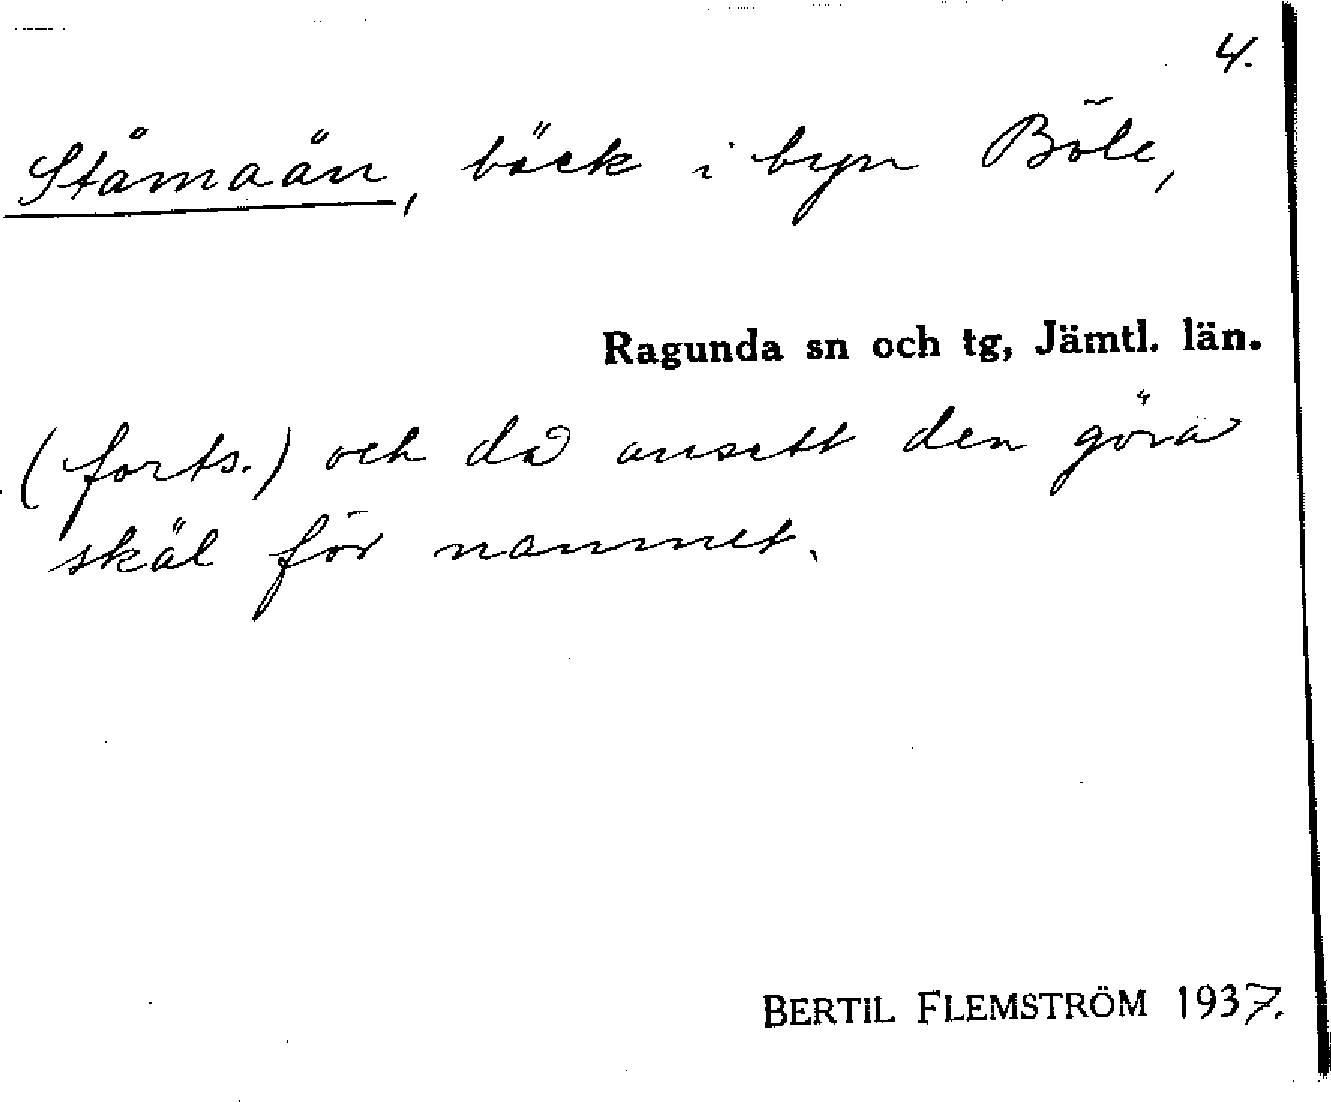 4.
Ståmaån, bäck i byn Böle,
Ragunda sn och tg, Jämtl. län.
(forts.) och då ansett den göra
skäl för namnet.
BERTIL FLEMSTRÖM 1937.